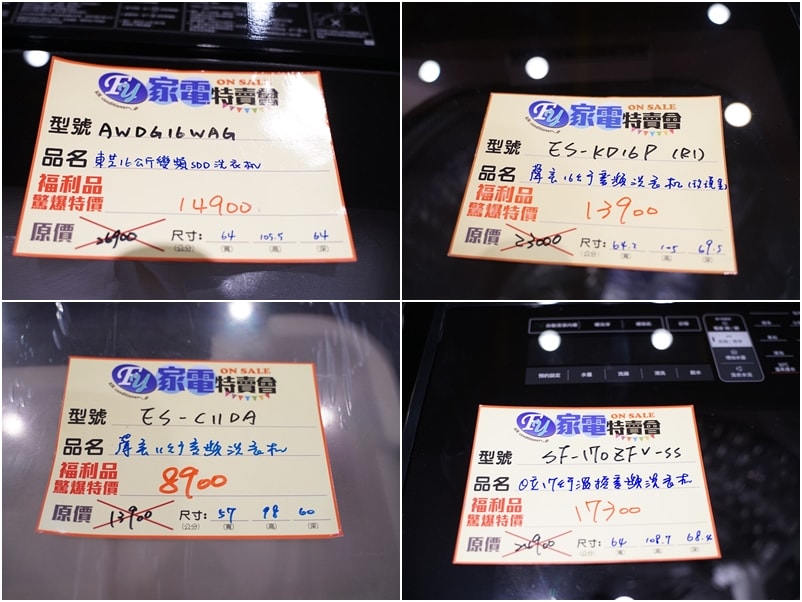 Fy 家電特賣會 ON SALE
型號 AWDG16WAG
品名 東芝16公斤變頻SDD洗衣机
福利品
驚爆特價 14900
原價 26900 尺寸: 64 105.5 64
(公分) (寬) (高) (深)
Fy 家電特賣會 ON SALE
型號 ES-KD16P (R1)
品名
福利品
驚爆特價 13900
原價 23000 尺寸: 64.2 105 69.5
(公分) (寬) (高) (深)
Fy 家電特賣會 ON SALE
型號 ES-C11DA
品名
福利品
驚爆特價 8900
原價 13900 尺寸: 57 98 60
(公分) (寬) (高) (深)
預約設定 水量 洗滌 清洗 脫水
Fy 家電特賣會 ON SALE
型號 SF-170ZFV-SS
品名 日立17公斤溫控變頻洗衣机
福利品
驚爆特價 17300
原價 尺寸: 64 108.7 68.4
(公分) (寬) (高) (深)